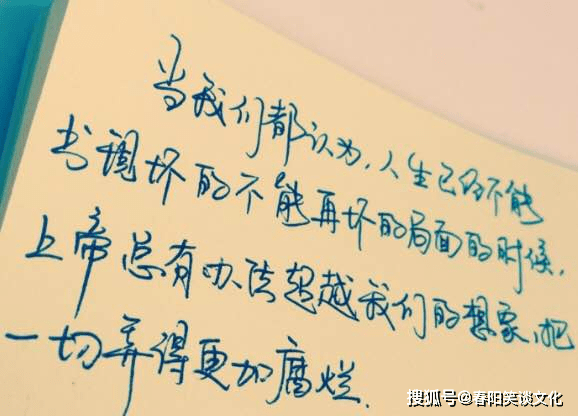 当我们都认为,人生已经不能
出现坏的不能再坏的局面的时候,
上帝总有办法超越我们的想象,把
一切弄得更加腐烂.
搜狐号@春阳笑谈文化